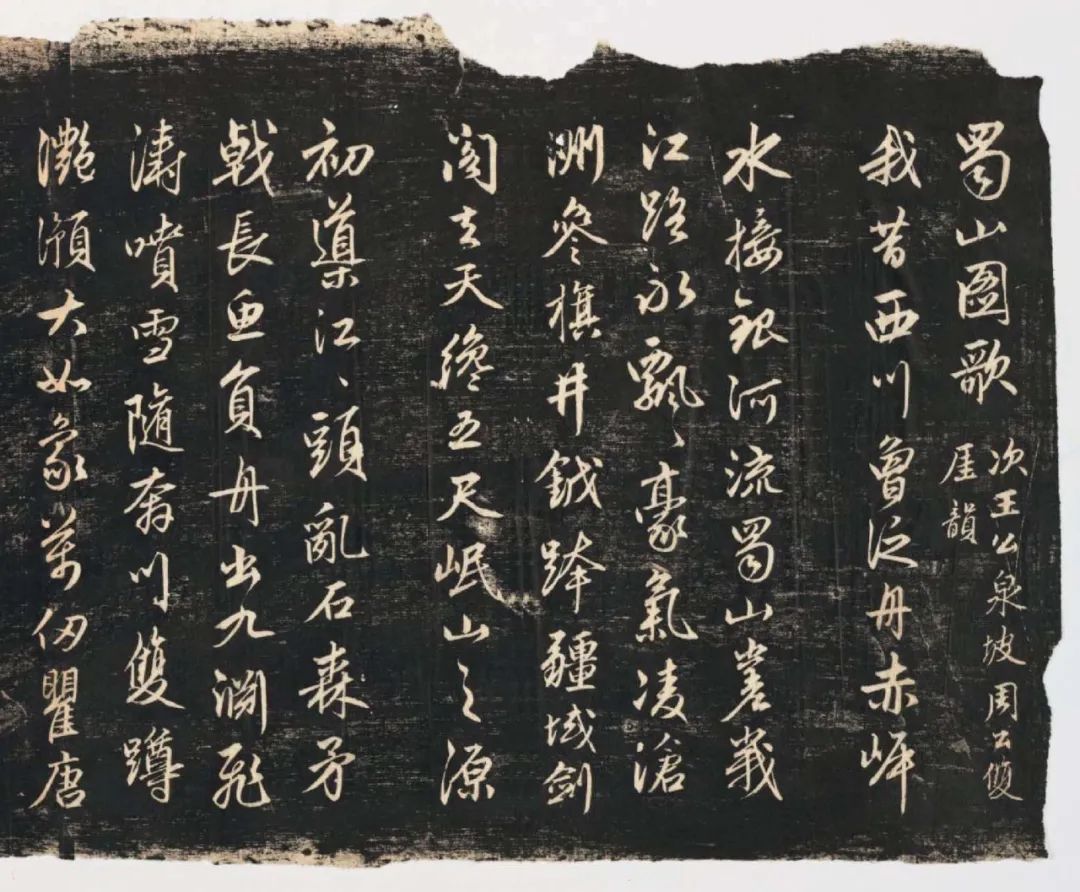 蜀山圖歌
次王公泉坡周公雙
厓韻
我昔西川曾泛舟赤岬
水接銀河流蜀山嵳峩
江路永飄〻豪氣凌滄
洲參旗井鉞跨疆域劍
閣去天纔五尺岷山之源
初導江〻頭亂石森矛
戟長魚負舟出九淵飛
濤噴雪隨奔川雙蹲
灔澦大如象萬仞瞿唐